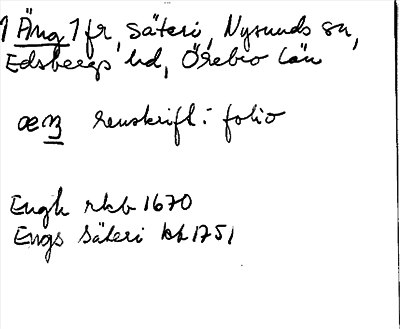 1 Äng 1 fr, säteri, Nysunds sn,
Edsbergs hd, Örebro län
æŋ renskrift i folio
Engh rkb 1670
Engs Säteri kb 1751